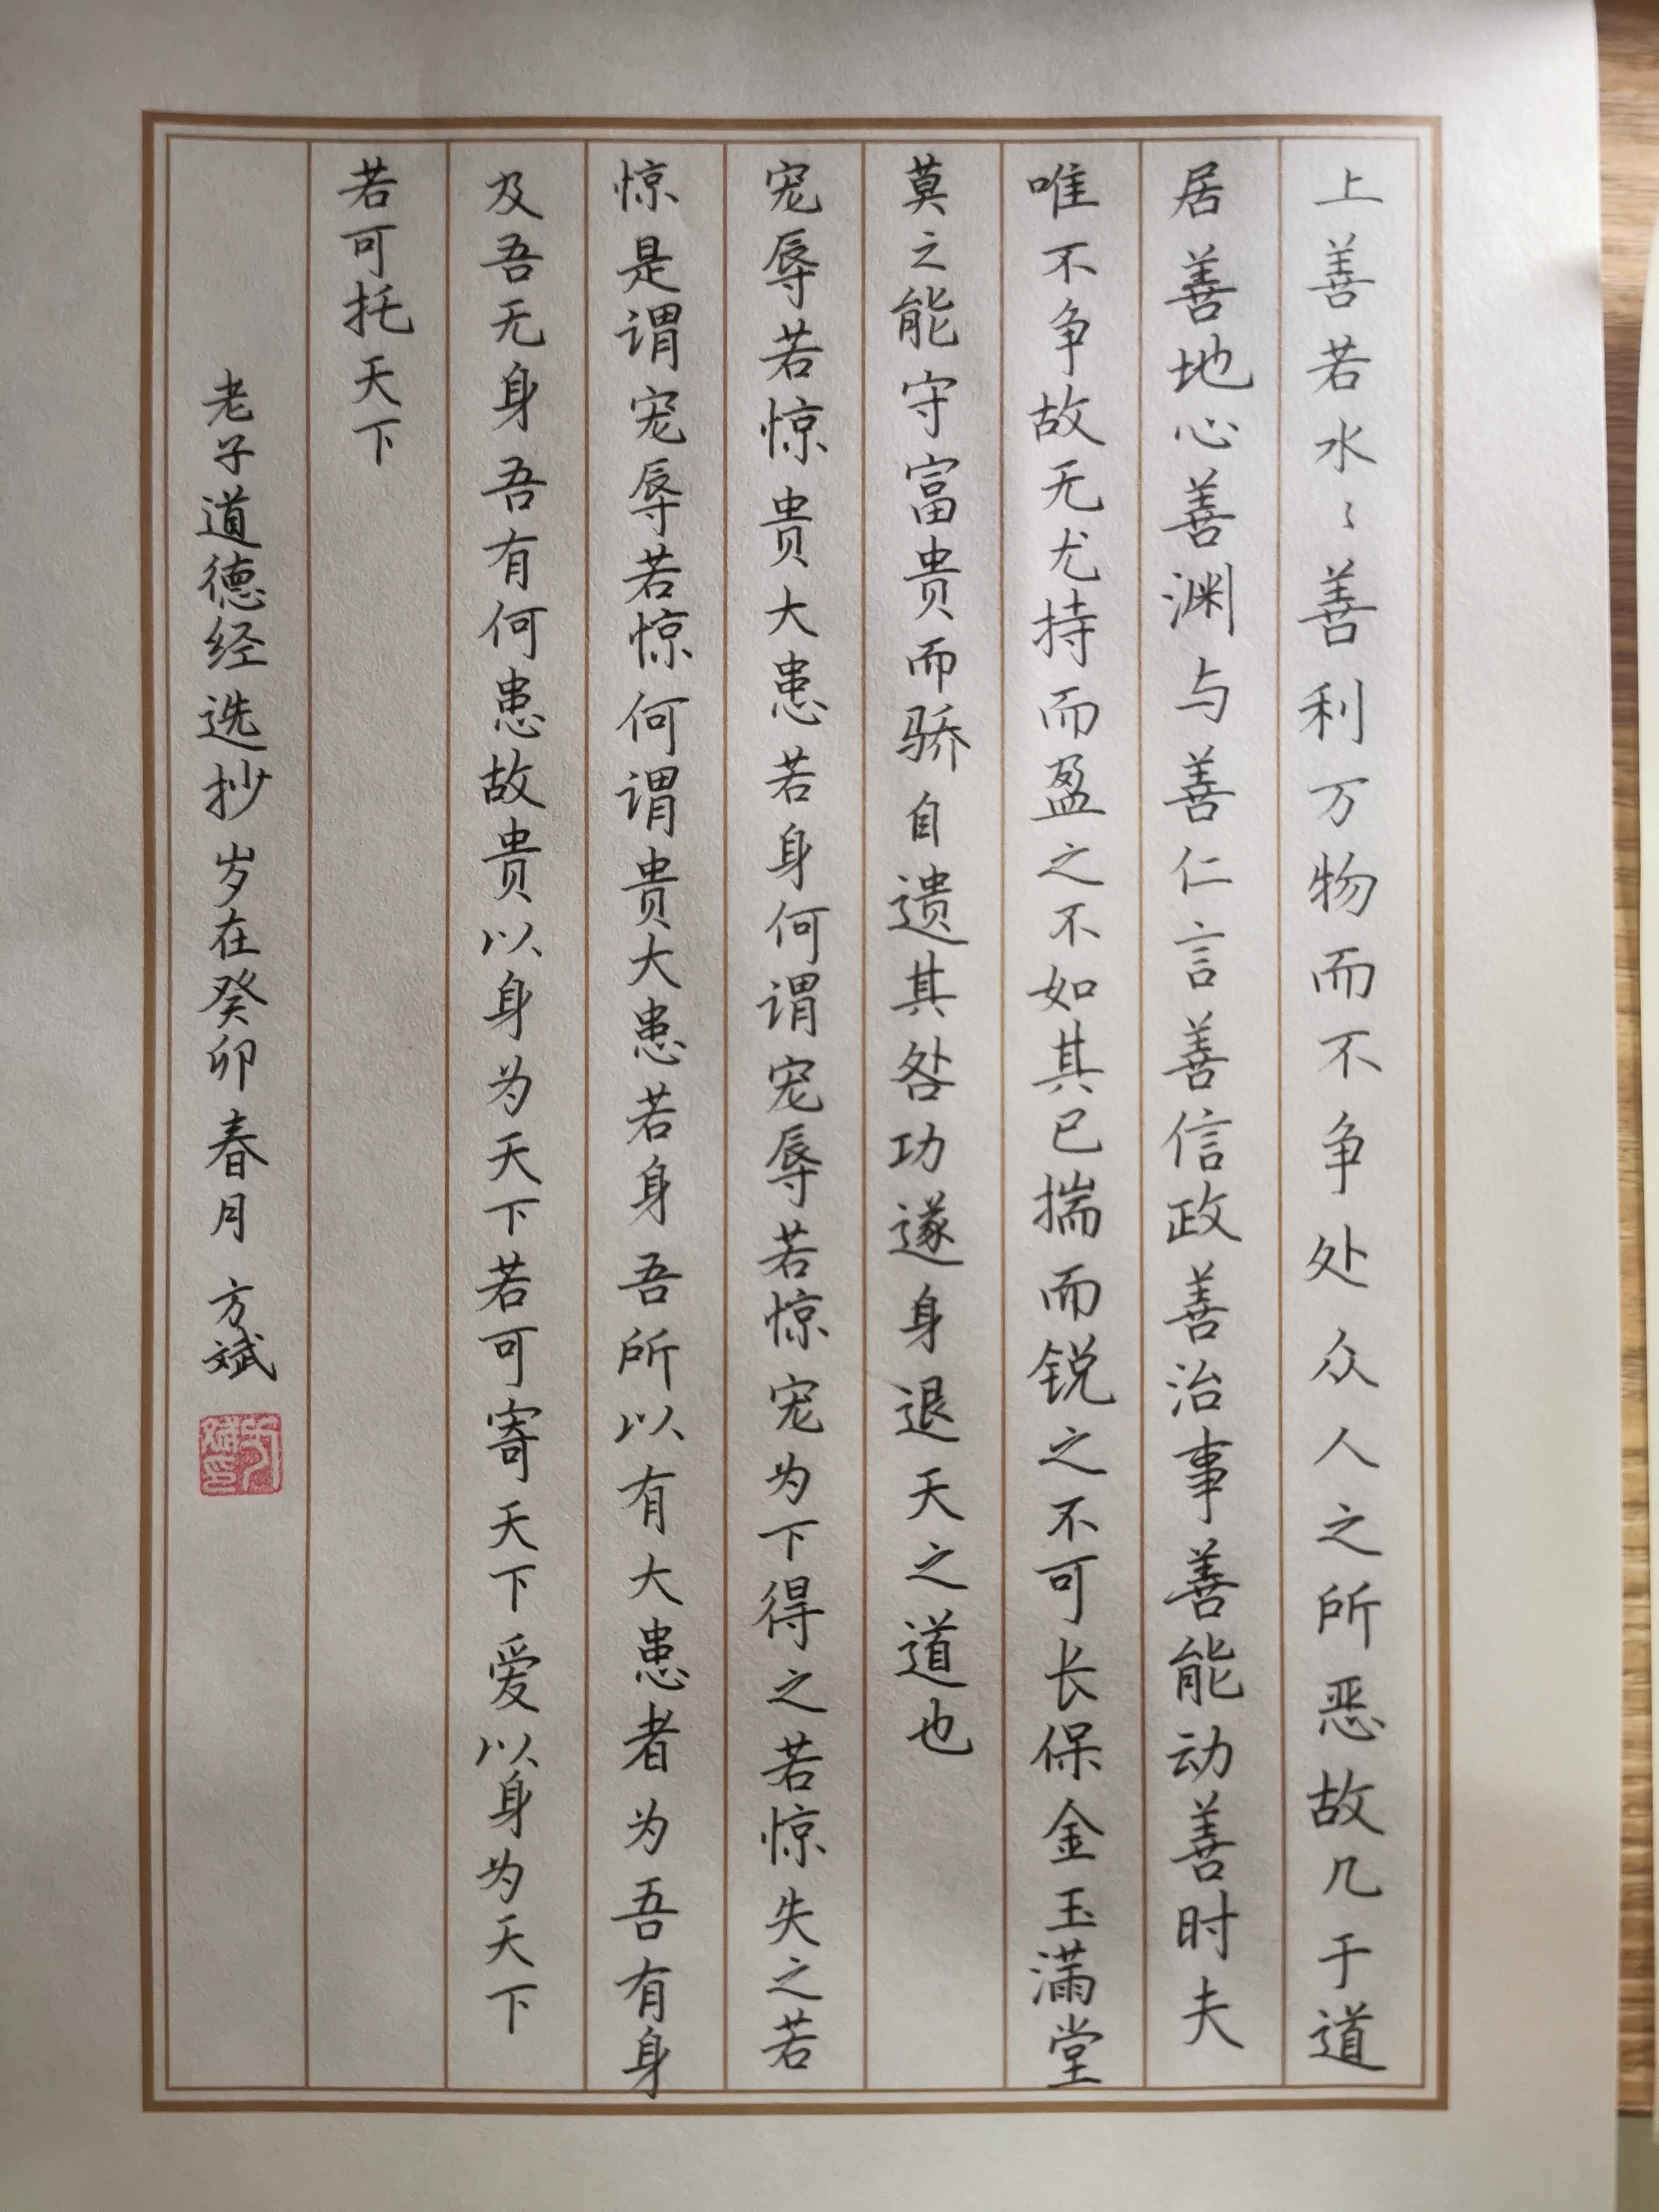 上善若水〻善利万物而不争处众人之所恶故几于道
居善地心善渊与善仁言善信政善治事善能动善时夫
唯不争故无尤持而盈之不如其已揣而锐之不可长保金玉满堂
莫之能守富贵而骄自遗其咎功遂身退天之道也
宠辱若惊贵大患若身何谓宠辱若惊宠为下得之若惊失之若
惊是谓宠辱若惊何谓贵大患若身吾所以有大患者为吾有身
及吾无身吾有何患故贵以身为天下若可寄天下爱以身为天下
若可托天下
老子道德经选抄岁在癸卯春月方斌
方斌印